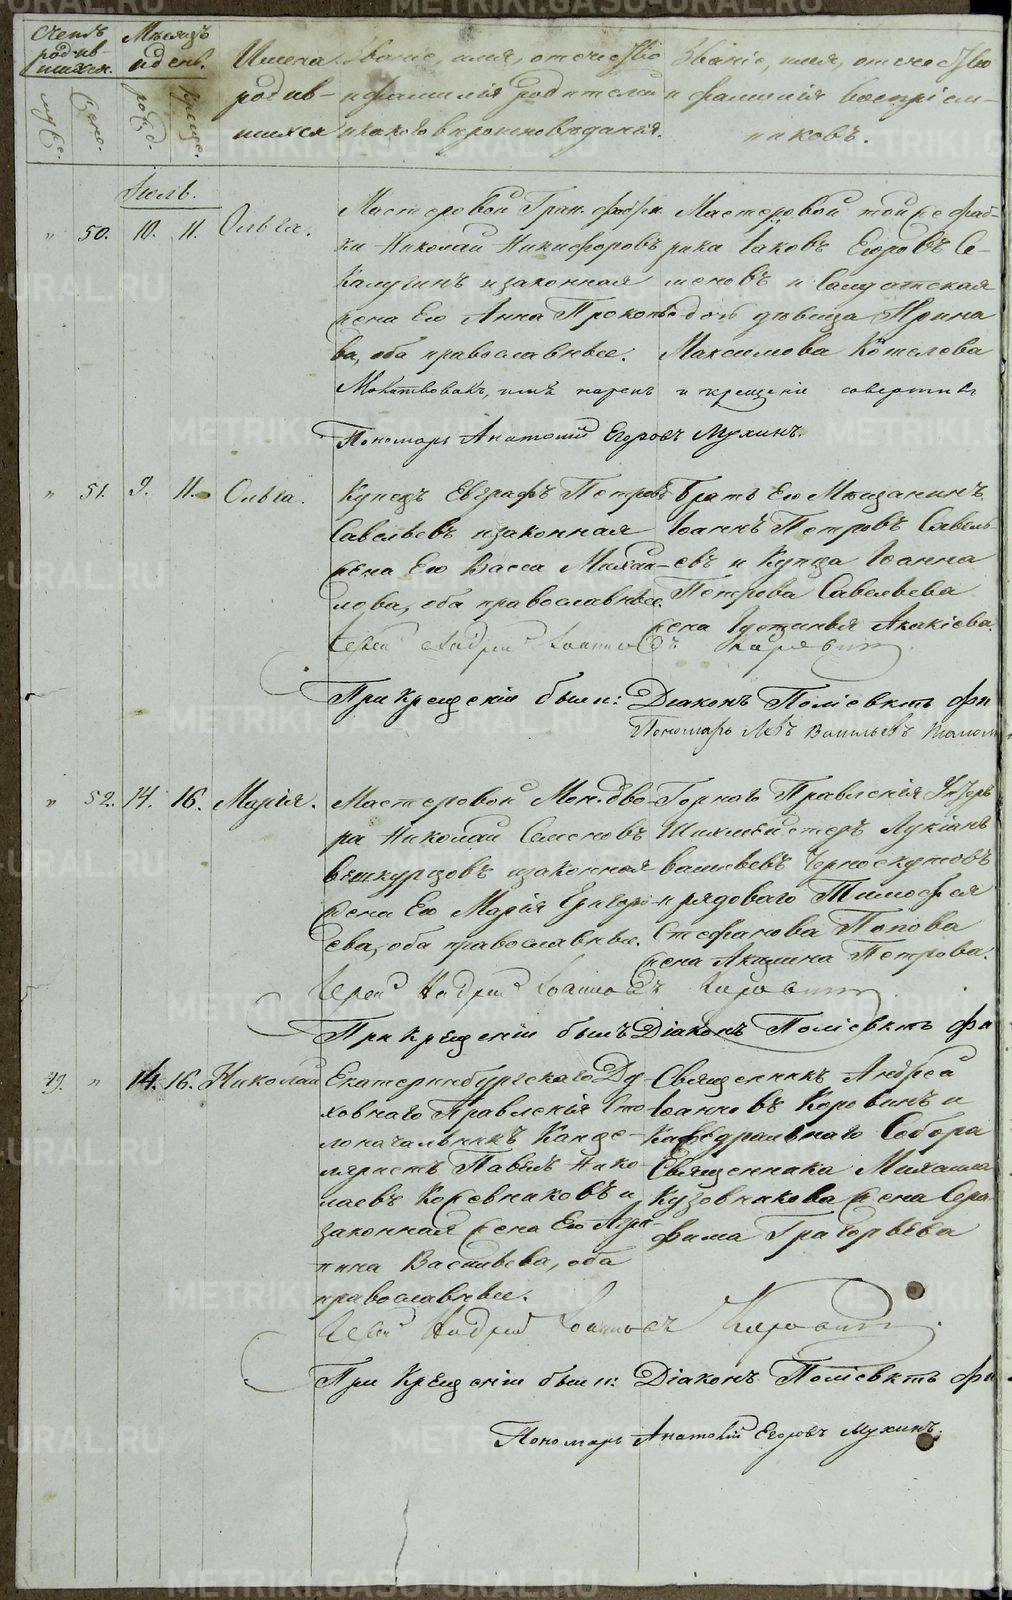 Счетъ родив- шихся. Мѣсяцъ и день. Имена родив- шихся
муж. Жен. рожд. крещ.
Званіе, имя, отечество
и фамилія родителей
и какого вѣроисповѣданія.
Званіе, имя, отечество
и фамилія воспріем-
никовъ.
Іюль.
" 50. 10. 11. Ольга.
Мастеровой Гран. фабри
ки Николай Никифоровъ
Калугинъ и законная
жена Его Анна Прокопье
ва, оба православные.
Мастеровой той же фаб-
рики Іаковъ Егоровъ Се-
меновъ и Солдатская
дочь дѣвица Ирина
Максимова Котелева
Молитвовалъ, имя нарекъ и крещеніе совершилъ
Пономарь Анатолій Егоровъ Мухинъ.
" 51. 9. 11. Ольга.
Купецъ Евграфъ Петровъ
Савельевъ и законная
жена Его Васса Михаи-
лова, оба православные.
Братъ Его Мѣщанинъ
Іоаннъ Петровъ Савель-
евъ и Купца Іоанна
Петрова Савельева
жена Іустинья Акакіева.
Іерей Андрей Іоанновъ Коровинъ
При Крещеніи были: Діаконъ Поліевктъ Фи
Пономарь Левъ Васильевъ
" 52. 14. 16. Марія.
Мастеровой Мон. дво
ра Николай Семеновъ
Вышкурцовъ и законная
жена Его Марія Григорь
ева, оба православные.
Горнаго Правленія Унтеръ
Шихмейстеръ Лукіанъ
Васильевъ Черноскутовъ
и рядоваго Тимофея
Стефанова Попова
жена Акилина Петрова.
Іерей Андрей Іоанновъ Коровинъ
При Крещеніи былъ Діаконъ Поліевктъ Фи
49. " 14. 16. Николай
Екатеринбургскаго Ду-
ховнаго Правленія Сто
лоначальникъ Канце-
ляристъ Павелъ Нико
лаевъ Коревниковъ и
законная жена Его Агри-
пина Васильева, оба
православные.
Священникъ Андрей
Іоанновъ Коровинъ и
Кафедральнаго Собора
Священника Михаила
Кузовникова жена Сера
фима Григорьева
Іерей Андрей Іоанновъ Коровинъ
При Крещеніи были: Діаконъ Поліевктъ Фи
Пономарь Анатолій Егоровъ Мухинъ.